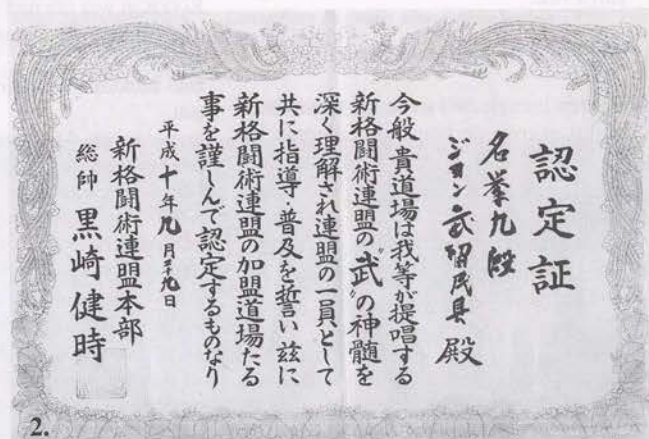 認定証
名挙九段
ジョン武留民具殿
今般貴道場は我等が提唱する
新格闘術連盟の〝武〟の神髄を
深く理解され連盟の一員として
共に指導・普及を誓い玆に
新格闘術連盟の加盟道場たる
事を謹しんで認定するものなり
平成十年九月二十九日
新格闘術連盟本部
総帥 黒崎健時
2.